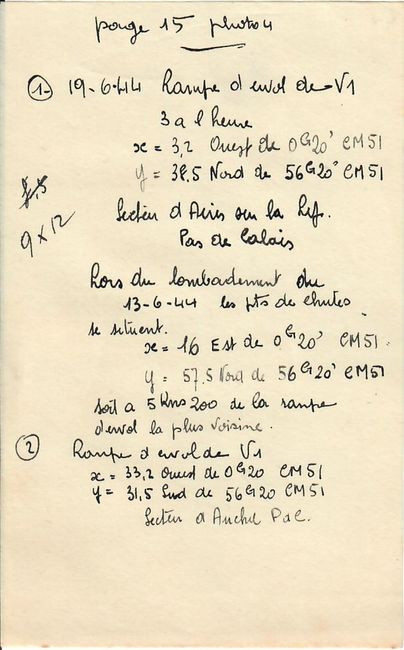 page 15 photo 4
1- 19-6-44 Rampe d'envol de V1
3 a l heure
x = 3,2 Ouest de 0G20' CM51
y = 38,5 Nord de 56G20' CM51
Secteur d'Aires sur la Lys.
Pas de Calais
9 x 12
Lors du bombardement du
13-6-44 les pts de chutes
se situent.
x = 16 Est de 0G20' CM51
y = 57.5 Nord de 56G20' CM51
soit a 5 Kms 200 de la rampe
d'envol la plus voisine.
2 Rampe d'envol de V1
x = 33,2 Ouest de 0G20 CM51
y = 31,5 Sud de 56G20 CM51
Secteur d Auchel PdC.